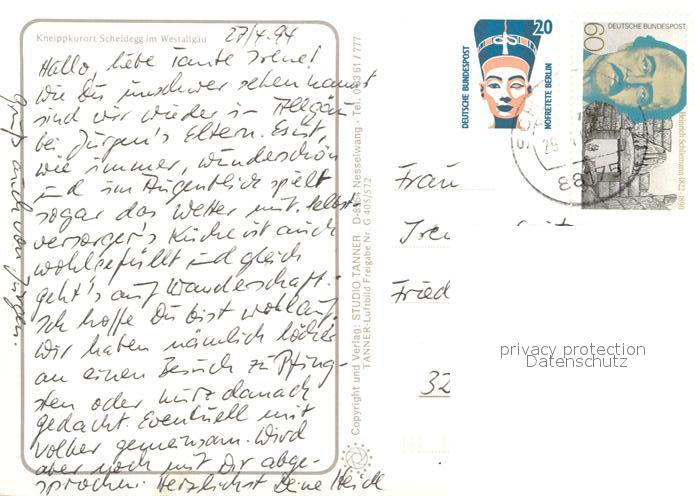 Kneippkurort Scheidegg im Westallgäu
27/4.94
Hallo, liebe Tante Irene!
Wie Du unschwer sehen kannst
sind wir wieder im Allgäu
bei Jürgen's Eltern. Es ist,
wie immer, wunderschön
und im Augenblick spielt
sogar das Wetter mit. Selbst-
versorger's Küche ist auch
wohlgefüllt und gleich
geht's auf Wanderschaft.
Ich hoffe Du bist wohlauf.
Wir haben nämlich
an einen Besuch zu Pfing-
sten oder kurz danach
gedacht. Eventuell mit
Volker gemeinsam. Wird
aber noch mit Dir abge-
sprochen. Herzlichst Deine Heidi
Gruß auch von Jürgen.
Copyright und Verlag: STUDIO TANNER D-8964 Nesselwang · Tel. 0 83 61 / 777
TANNER-Luftbild Freigabe Nr. G 405/572
DEUTSCHE BUNDESPOST
20
NOFRETETE BERLIN
DEUTSCHE BUNDESPOST
60
Heinrich Schliemann 1822-1890
88175
Frau
Fried
32
privacy protection
Datenschutz